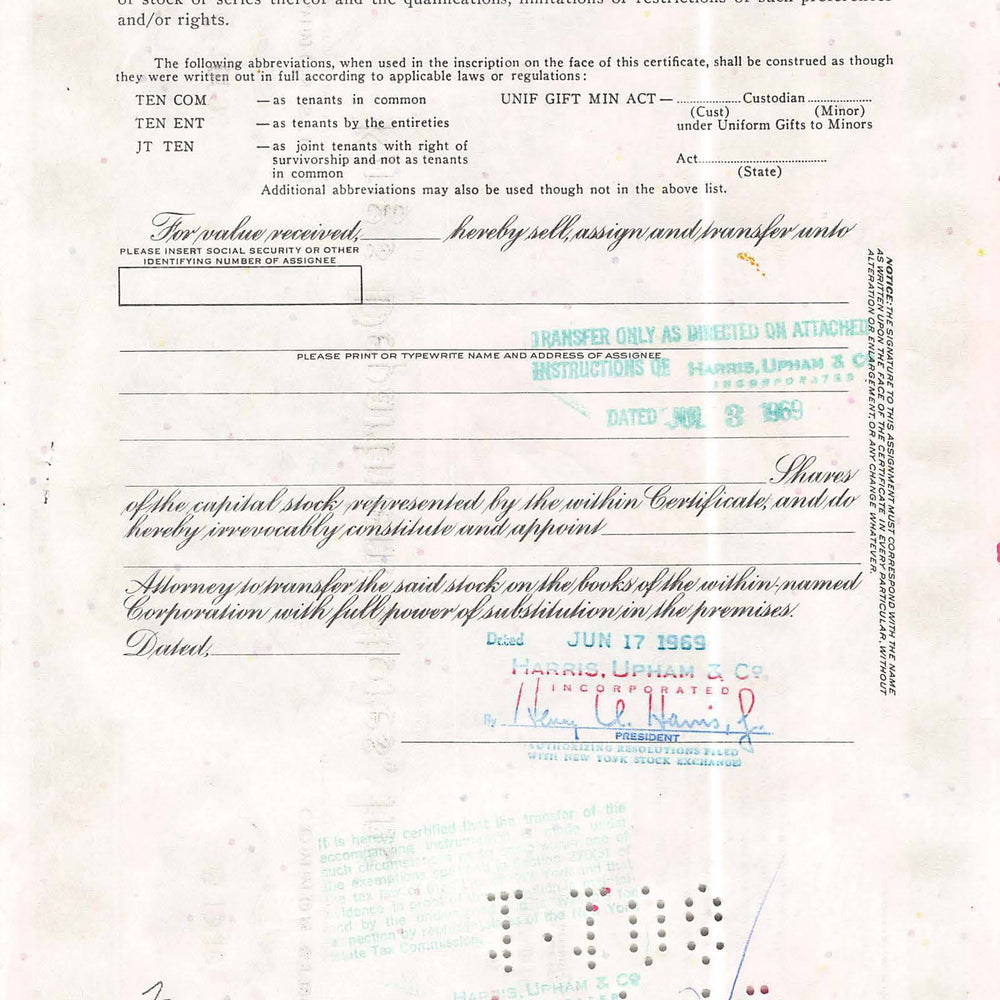 of stock or series thereof and the qualifications, limitations or restrictions of such preferences
and/or rights.
The following abbreviations, when used in the inscription on the face of this certificate, shall be construed as though
they were written out in full according to applicable laws or regulations:
TEN COM —as tenants in common UNIF GIFT MIN ACT—....................Custodian....................
(Cust) (Minor)
TEN ENT —as tenants by the entireties under Uniform Gifts to Minors
JT TEN —as joint tenants with right of
survivorship and not as tenants
in common
Act........................................
(State)
Additional abbreviations may also be used though not in the above list.
For value received,________hereby sell, assign and transfer unto
PLEASE INSERT SOCIAL SECURITY OR OTHER
IDENTIFYING NUMBER OF ASSIGNEE
TRANSFER ONLY AS DIRECTED ON ATTACHED
PLEASE PRINT OR TYPEWRITE NAME AND ADDRESS OF ASSIGNEE
INSTRUCTIONS OF HARRIS, UPHAM & CO
INCORPORATED
DATED 3 1969
Shares
of the capital stock represented by the within Certificate, and do
hereby irrevocably constitute and appoint
Attorney to transfer the said stock on the books of the within-named
Corporation with full power of substitution in the premises.
Dated,
Dated JUN 17 1969
HARRIS, UPHAM & Co.
INCORPORATED
By Henry U. Harris, Jr.
PRESIDENT
AUTHORIZING RESOLUTIONS FILED
WITH NEW YORK STOCK EXCHANGE
NOTICE: THE SIGNATURE TO THIS ASSIGNMENT MUST CORRESPOND WITH THE NAME
AS WRITTEN UPON THE FACE OF THE CERTIFICATE IN EVERY PARTICULAR, WITHOUT
ALTERATION OR ENLARGEMENT, OR ANY CHANGE WHATEVER.
It is hereby certified that the transfer of the
accompanying instrument is made under
such circumstances
the exemptions 270(5) of
the tax law of York and that
by the
the New York
State Tax Commission
HARRIS, UPHAM & Co